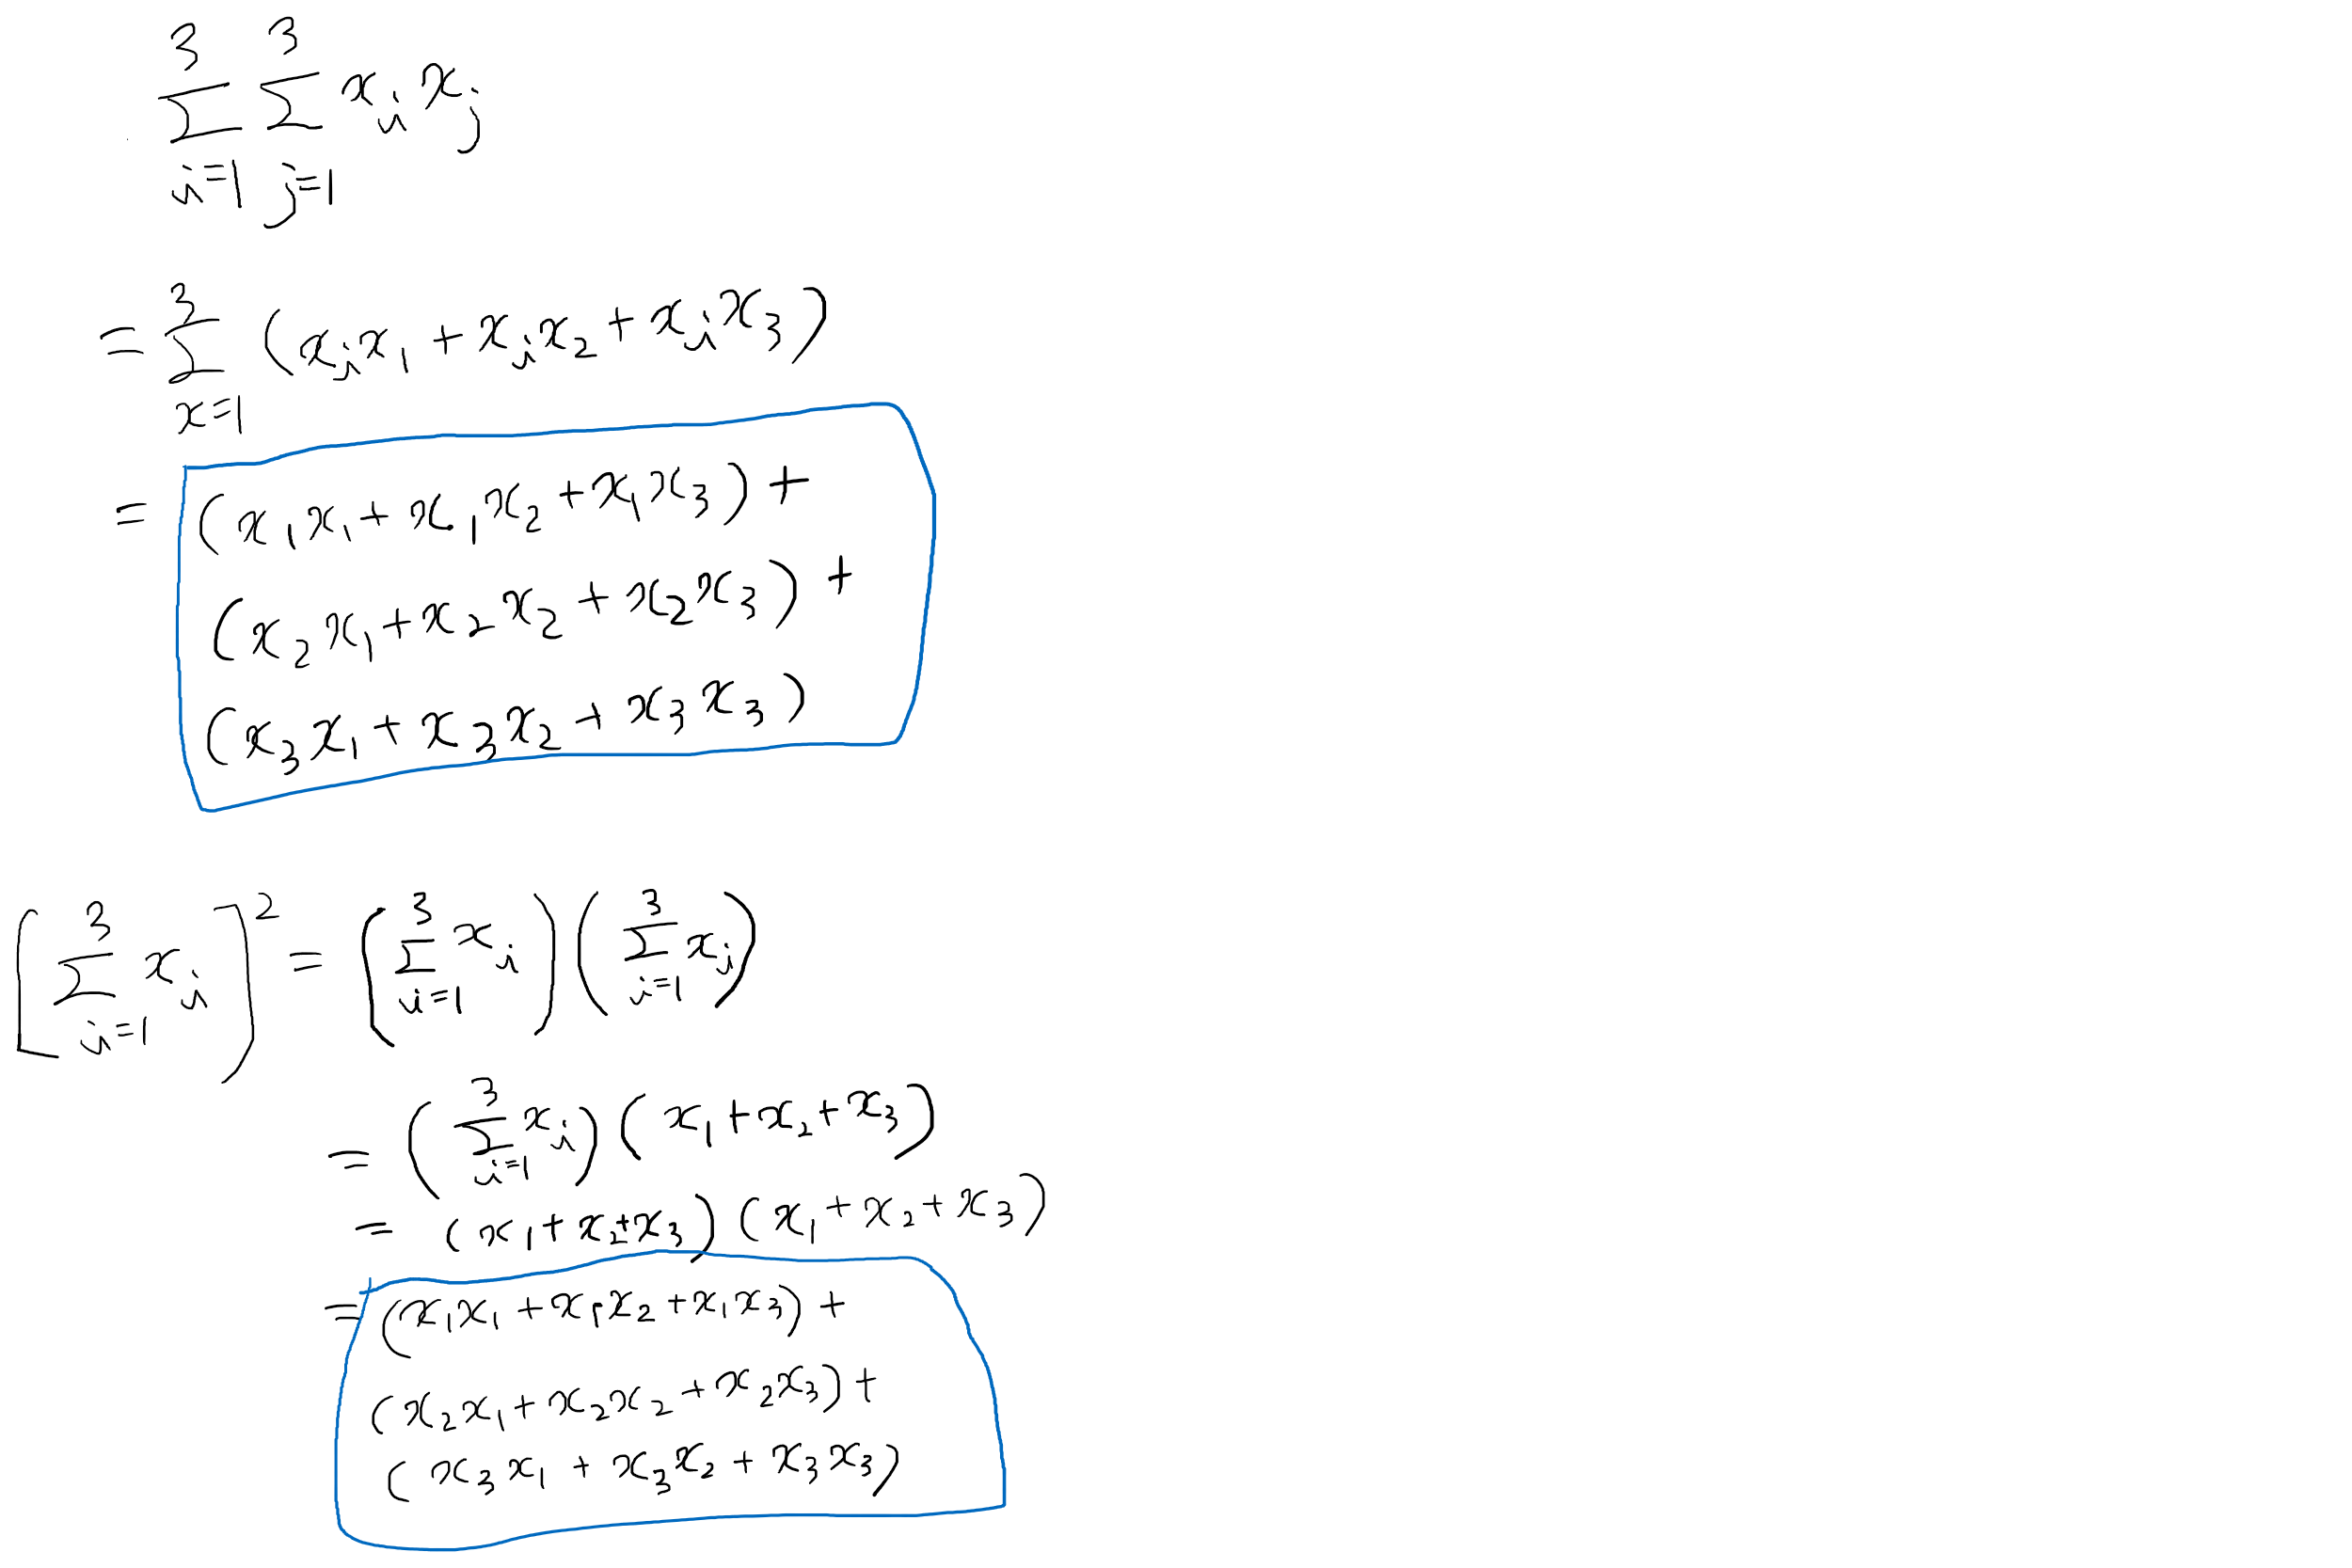 \sum_{i=1}^{3} \sum_{j=1}^{3} x_i x_j
= \sum_{x=1}^{3} (x_i x_1 + x_i x_2 + x_i x_3)
= (x_1 x_1 + x_1 x_2 + x_1 x_3) +
(x_2 x_1 + x_2 x_2 + x_2 x_3) +
(x_3 x_1 + x_3 x_2 + x_3 x_3)
\left[ \sum_{i=1}^{3} x_i \right]^2 = \left( \sum_{i=1}^{3} x_i \right) \left( \sum_{i=1}^{3} x_i \right)
= \left( \sum_{i=1}^{3} x_i \right) (x_1 + x_2 + x_3)
= (x_1 + x_2 + x_3) (x_1 + x_2 + x_3)
= (x_1 x_1 + x_1 x_2 + x_1 x_3) +
(x_2 x_1 + x_2 x_2 + x_2 x_3) +
(x_3 x_1 + x_3 x_2 + x_3 x_3)